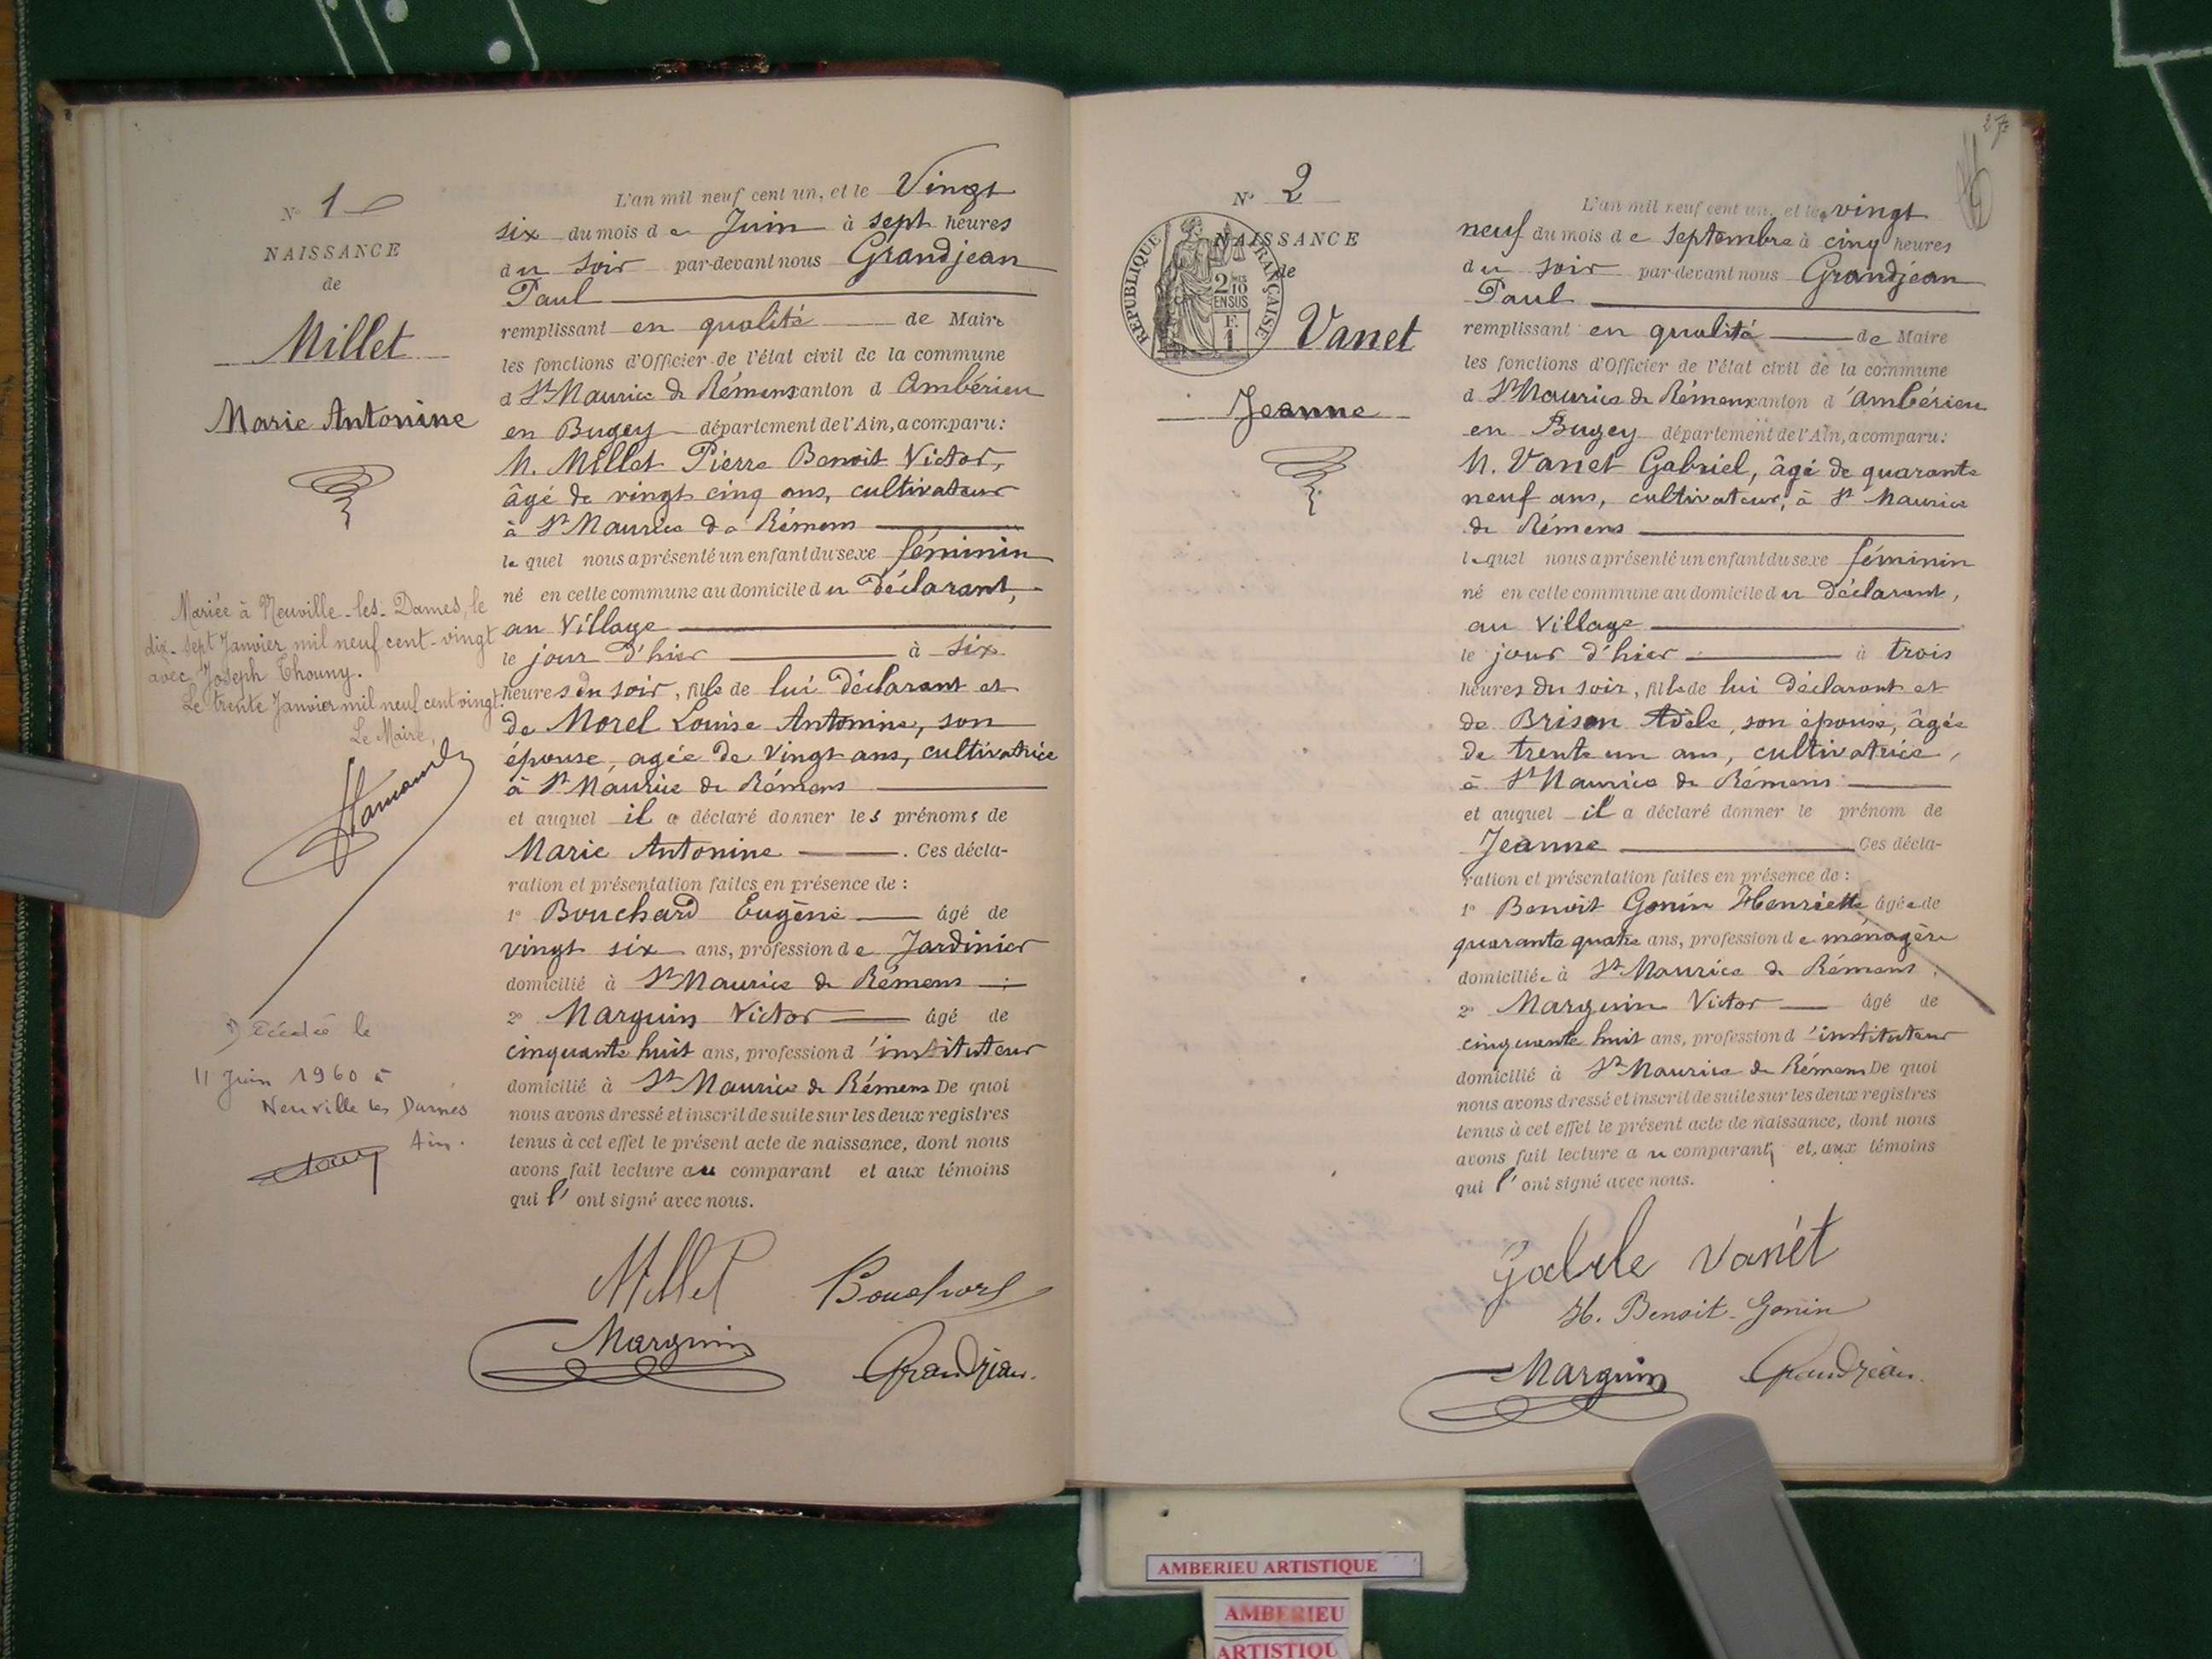 N° 1
NAISSANCE
de
Millet
Marie Antonine
Mariée à Neuville-les-Dames, le
dix-sept Janvier mil neuf cent-vingt
avec Joseph Thouny.
Le trente Janvier mil neuf cent vingt.
Le Maire,
Décédée le
11 Juin 1960 à
Neuville les Dames
Ain.
L'an mil neuf cent un, et le Vingt
six du mois de Juin à sept heures
du soir par-devant nous Grandjean
Paul
remplissant en qualité de Maire
les fonctions d'Officier de l'état civil de la commune
d St Maurice de Rémens canton d Ambérieu
en Bugey département de l'Ain, a comparu:
M. Millet Pierre Benoit Victor,
âgé de vingt cinq ans, cultivateur
à St Maurice de Rémens
lequel nous a présenté un enfant du sexe féminin
né en cette commune au domicile du déclarant,
au Village
le jour d'hier à six
heures du soir, fils de lui déclarant et
de Morel Louise Antonine, son
épouse, agée de vingt ans, cultivatrice
à St Maurice de Rémens
et auquel il a déclaré donner les prénoms de
Marie Antonine . Ces décla-
ration et présentation faites en présence de :
1° Bouchard Eugène âgé de
vingt six ans, profession de Jardinier
domicilié à St Maurice de Rémens ;
2° Marguin Victor âgé de
cinquante huit ans, profession d'instituteur
domicilié à St Maurice de Rémens De quoi
nous avons dressé et inscrit de suite sur les deux registres
tenus à cet effet le présent acte de naissance, dont nous
avons fait lecture au comparant et aux témoins
qui l'ont signé avec nous.
Millet Bouchard
Marguin Grandjean.
27
N° 2
NAISSANCE
de
RÉPUBLIQUE FRANÇAISE
2 10
EN SUS
F.
1
Vanet
Jeanne
L'an mil neuf cent un, et le vingt
neuf du mois de Septembre à cinq heures
du soir par-devant nous Grandjean
Paul
remplissant en qualité de Maire
les fonctions d'Officier de l'état civil de la commune
d St Maurice de Rémens canton d'Ambérieu
en Bugey département de l'Ain, a comparu:
M. Vanet Gabriel, âgé de quarante
neuf ans, cultivateur, à St Maurice
de Rémens
lequel nous a présenté un enfant du sexe féminin
né en cette commune au domicile du déclarant,
au village
le jour d'hier à trois
heures du soir, fils de lui déclarant et
de Brison Adèle, son épouse, âgée
de trente un ans, cultivatrice,
à St Maurice de Rémens
et auquel il a déclaré donner le prénom de
Jeanne Ces décla-
ration et présentation faites en présence de :
1° Benoit Gonin Henriette âgée de
quarante quatre ans, profession de ménagère
domiciliée à St Maurice de Rémens ;
2° Marguin Victor âgé de
cinquante huit ans, profession d'instituteur
domicilié à St Maurice de Rémens De quoi
nous avons dressé et inscrit de suite sur les deux registres
tenus à cet effet le présent acte de naissance, dont nous
avons fait lecture au comparant, et, aux témoins
qui l'ont signé avec nous.
Vanét
H. Benoit-Gonin
Marguin Grandjean.
AMBERIEU ARTISTIQUE
AMBERIEU
ARTISTIQU